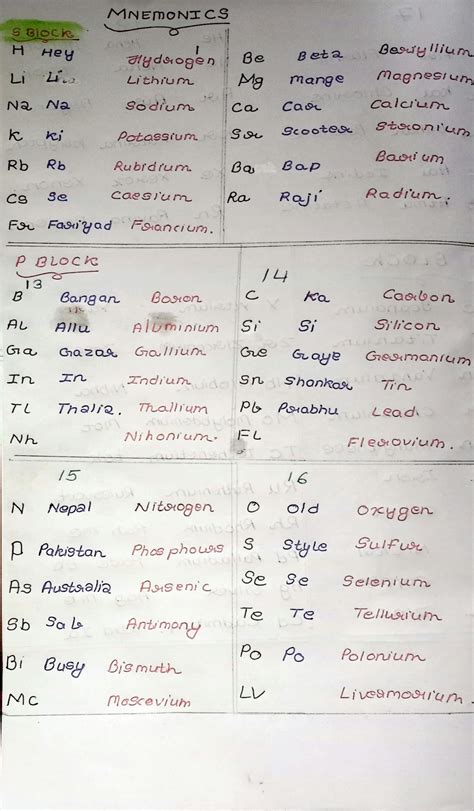 MNEMONICS
S BLOCK
H Hey Hydrogen
Li Li Lithium
Na Na Sodium
K Ki Potassium
Rb Rb Rubidium
Cs Se Caesium
Fr Fariyad Francium.
Be Beta Beryllium
Mg mange Magnesium
Ca Car Calcium
Sr Scooter Stronium
Ba Bap Barium
Ra Raji Radium.
P BLOCK
13
B Bangan Boron
AL Allu Aluminium
Ga Gazar Gallium
In In Indium
TL Thalia. Thallium
Nh Nihonium.
14
C Ka Carbon
Si Si Silicon
Ge Gaye Germanium
Sn Shonkar Tin
Pb Prabhu Lead.
FL Flerovium.
15
N Nepal Nitrogen
P Pakistan Phosphours
As Australia Arsenic
Sb Sab Antimony
Bi Busy Bismuth
Mc Moscevium
16
O Old Oxygen
S Style Sulfur
Se Se Selenium
Te Te Tellurium
Po Po Polonium
LV Livermorium.